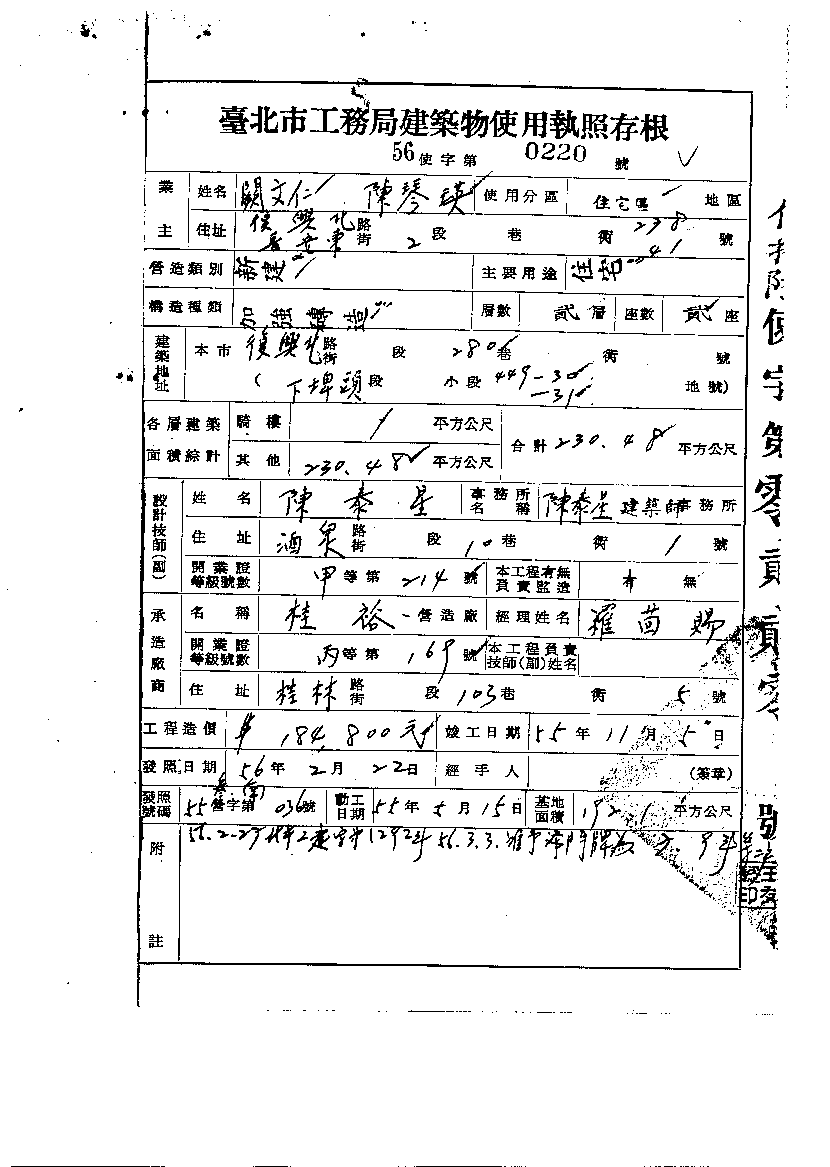 臺北市工務局建築物使用執照存根
56使字第 0220 號
業主 姓名 闕文仁 陳琴瑛 使用分區 住宅區 地區
住址 復興北 路街 2段 巷 衖 238 41號
營造類別 新建 主要用途 住宅
構造種類 加強磚造 層數 貳層 座數 貳座
建築地址 本市 復興北路街 段 280巷 衖 號
(下埤頭段 小段 449-30 -31 地號)
各層建築面積綜計 騎樓 / 平方公尺 合計 230.48 平方公尺
其他 230.48 平方公尺
設計技師(副) 姓名 陳泰星 事務所名稱 陳泰星建築師事務所
住址 酒泉路街 段 10巷 衖 1號
開業證等級號數 甲等第 214號 本工程有無負責監造 有 無
承造廠商 名稱 桂裕營造廠 經理姓名 羅茴賜
開業證等級號數 丙等第 169號 本工程負責技師(副)姓名
住址 桂林路街 段 103巷 衖 5號
工程造價 $184,800元 竣工日期 55年11月5日
發照日期 56年2月22日 經手人 (簽章)
發照號碼 55營字第036號 動工日期 55年5月15日 基地面積 192.1 平方公尺
附註
使字第零貳貳零號